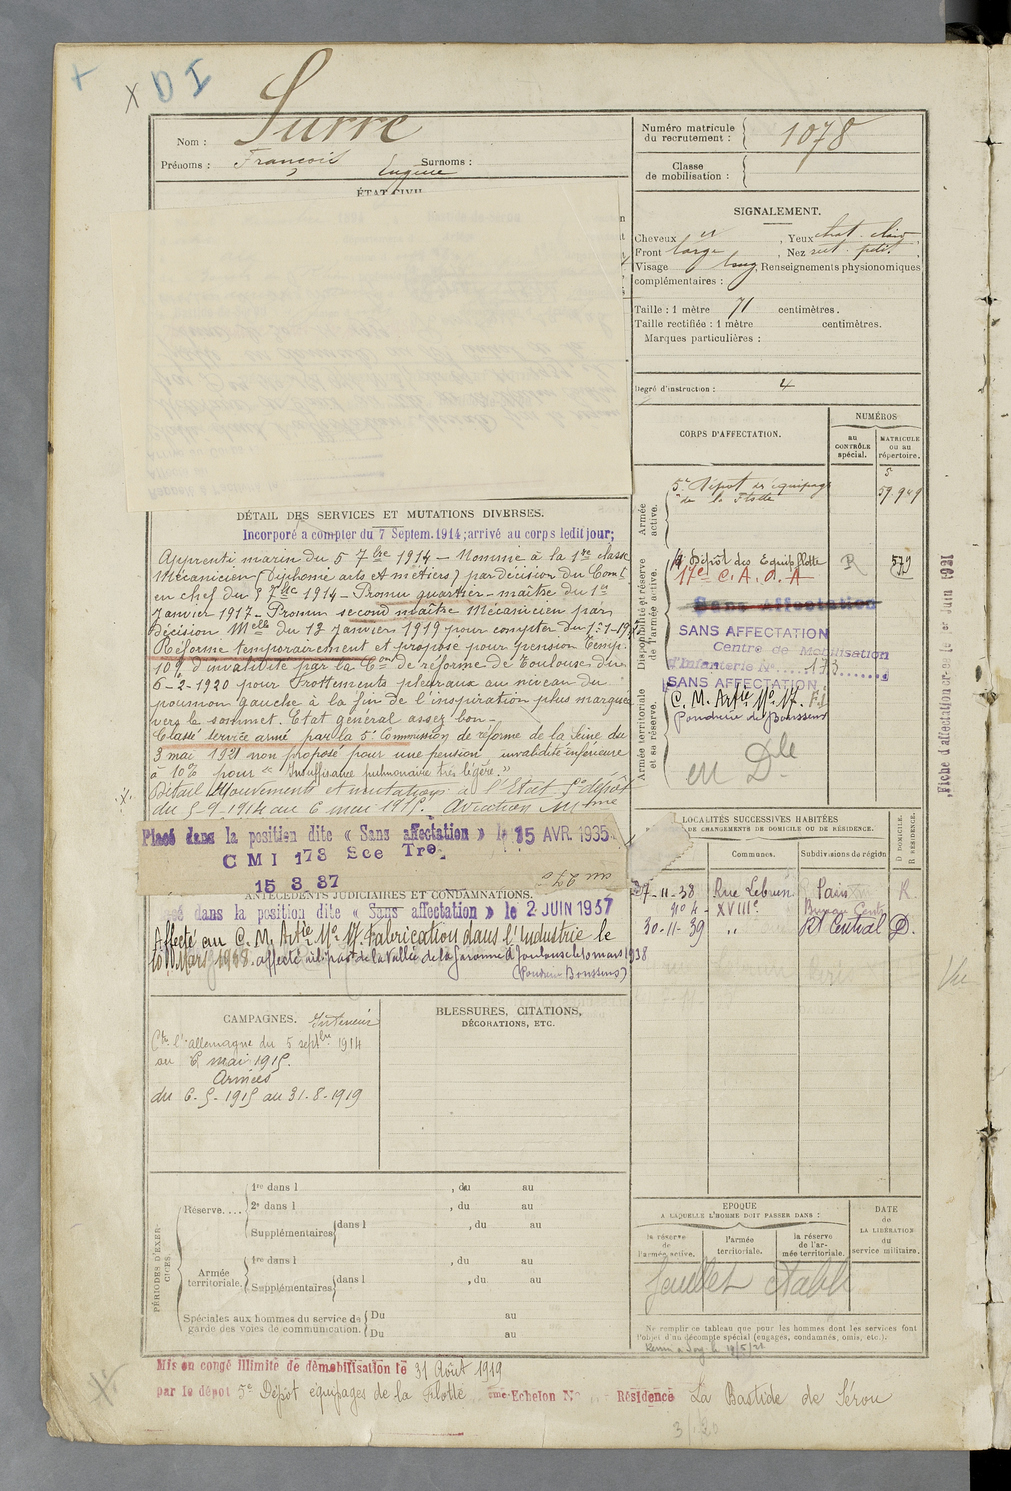 X DI
Nom : Surre
Prénoms : François Eugène Surnoms :
ÉTAT CIVIL
Numéro matricule du recrutement : 1078
Classe de mobilisation :
SIGNALEMENT.
Cheveux , Yeux chat. clair
Front large , Nez rect. petit
Visage long, Renseignements physionomiques
complémentaires :
Taille : 1 mètre 71 centimètres.
Taille rectifiée : 1 mètre centimètres.
Marques particulières :
Degré d'instruction : 4
CORPS D'AFFECTATION.
NUMÉROS
au CONTRÔLE spécial.
MATRICULE ou au répertoire.
Armée active.
5e Dépôt des équipages de la Flotte
5 59.949
Disponibilité et réserve de l'armée active.
Dépôt des Equip. flotte R 579
17e C. A. d. A
Sans Affectation
SANS AFFECTATION
Centre de Mobilisation
d'Infanterie No 173
SANS AFFECTATION
Armée territoriale et sa réserve.
C. M. Artie No 17. F.I
Poudrerie de Boussens
en Dle
Fiche d'affectation créée le 1er Juin 1921
DÉTAIL DES SERVICES ET MUTATIONS DIVERSES.
Incorporé à compter du 7 Septem. 1914; arrivé au corps ledit jour;
Apprenti marin du 5 7bre 1914 — Nommé à la 1re classe
Mécanicien (Diplômé arts et métiers) par décision du Comt
en chef du 9 7bre 1914 – Promu quartier-maître du 1er
Janvier 1917 – Promu second maître Mécanicien par
Décision Mlle du 13 Janvier 1919 pour compter du 1-1-19
Réformé temporairement et proposé pour pension temp.
10% d'invalidité par la Con de réforme de Toulouse du
6-2-1920 pour Frottements pleuraux au niveau du
poumon gauche à la fin de l'inspiration plus marqués
vers le sommet. Etat général assez bon –
Classé service armé par la 5e Commission de réforme de la Seine du
3 mai 1921 non proposé pour une pension invalidité inférieure
à 10% pour "Insuffisance pulmonaire très légère."
Détail Mouvements et mutations à l'Etat 5e dépôt
du 5-9-1914 au 6 mai 1915. Aviation Mtme
Placé dans la position dite « Sans affectation » le 15 AVR. 1935
CMI 173 Sce Tre
15 3 37
ANTÉCÉDENTS JUDICIAIRES ET CONDAMNATIONS.
dans la position dite « Sans affectation » le 2 JUIN 1937
Affecté au C. M. Artie No 17. Fabrication dans l'Industrie le
10 Mars 1938. affecté de la Vallée de la Garonne à Toulouse le 10 mars 1938
(Poudrie Boussens)
LOCALITÉS SUCCESSIVES HABITÉES
DE CHANGEMENTS DE DOMICILE OU DE RÉSIDENCE.
Communes.
Subdivisions de région
D DOMICILE.
R RÉSIDENCE.
27-11-38 Rue Lebrun Paris R
No 4 – XVIIIe Bureau Central
30-11-39 " Rt Central D.
CAMPAGNES.
Intérieur
Ctre l'allemagne du 5 septbre 1914
au 5 mai 1915.
Armées
du 6-5-1915 au 31-8-1919
BLESSURES, CITATIONS,
DÉCORATIONS, ETC.
PÉRIODES D'EXERCICES.
Réserve....
1re dans l , du au
2e dans l , du au
Supplémentaires dans l , du au
Armée territoriale.
1re dans l , du au
Supplémentaires dans l , du au
Spéciales aux hommes du service de garde des voies de communication.
Du au
Du au
EPOQUE
A LAQUELLE L'HOMME DOIT PASSER DANS :
la réserve de l'armée active.
l'armée territoriale.
la réserve de l'armée territoriale.
DATE de LA LIBÉRATION du service militaire.
feuillet établi
Ne remplir ce tableau que pour les hommes dont les services font
l'objet d'un décompte spécial (engagés, condamnés, omis, etc.).
Mis en congé illimité de démobilisation le 31 Août 1919
par le dépôt 5e Dépôt équipages de la Flotte ème Echelon No Résidence La Bastide de Sérou